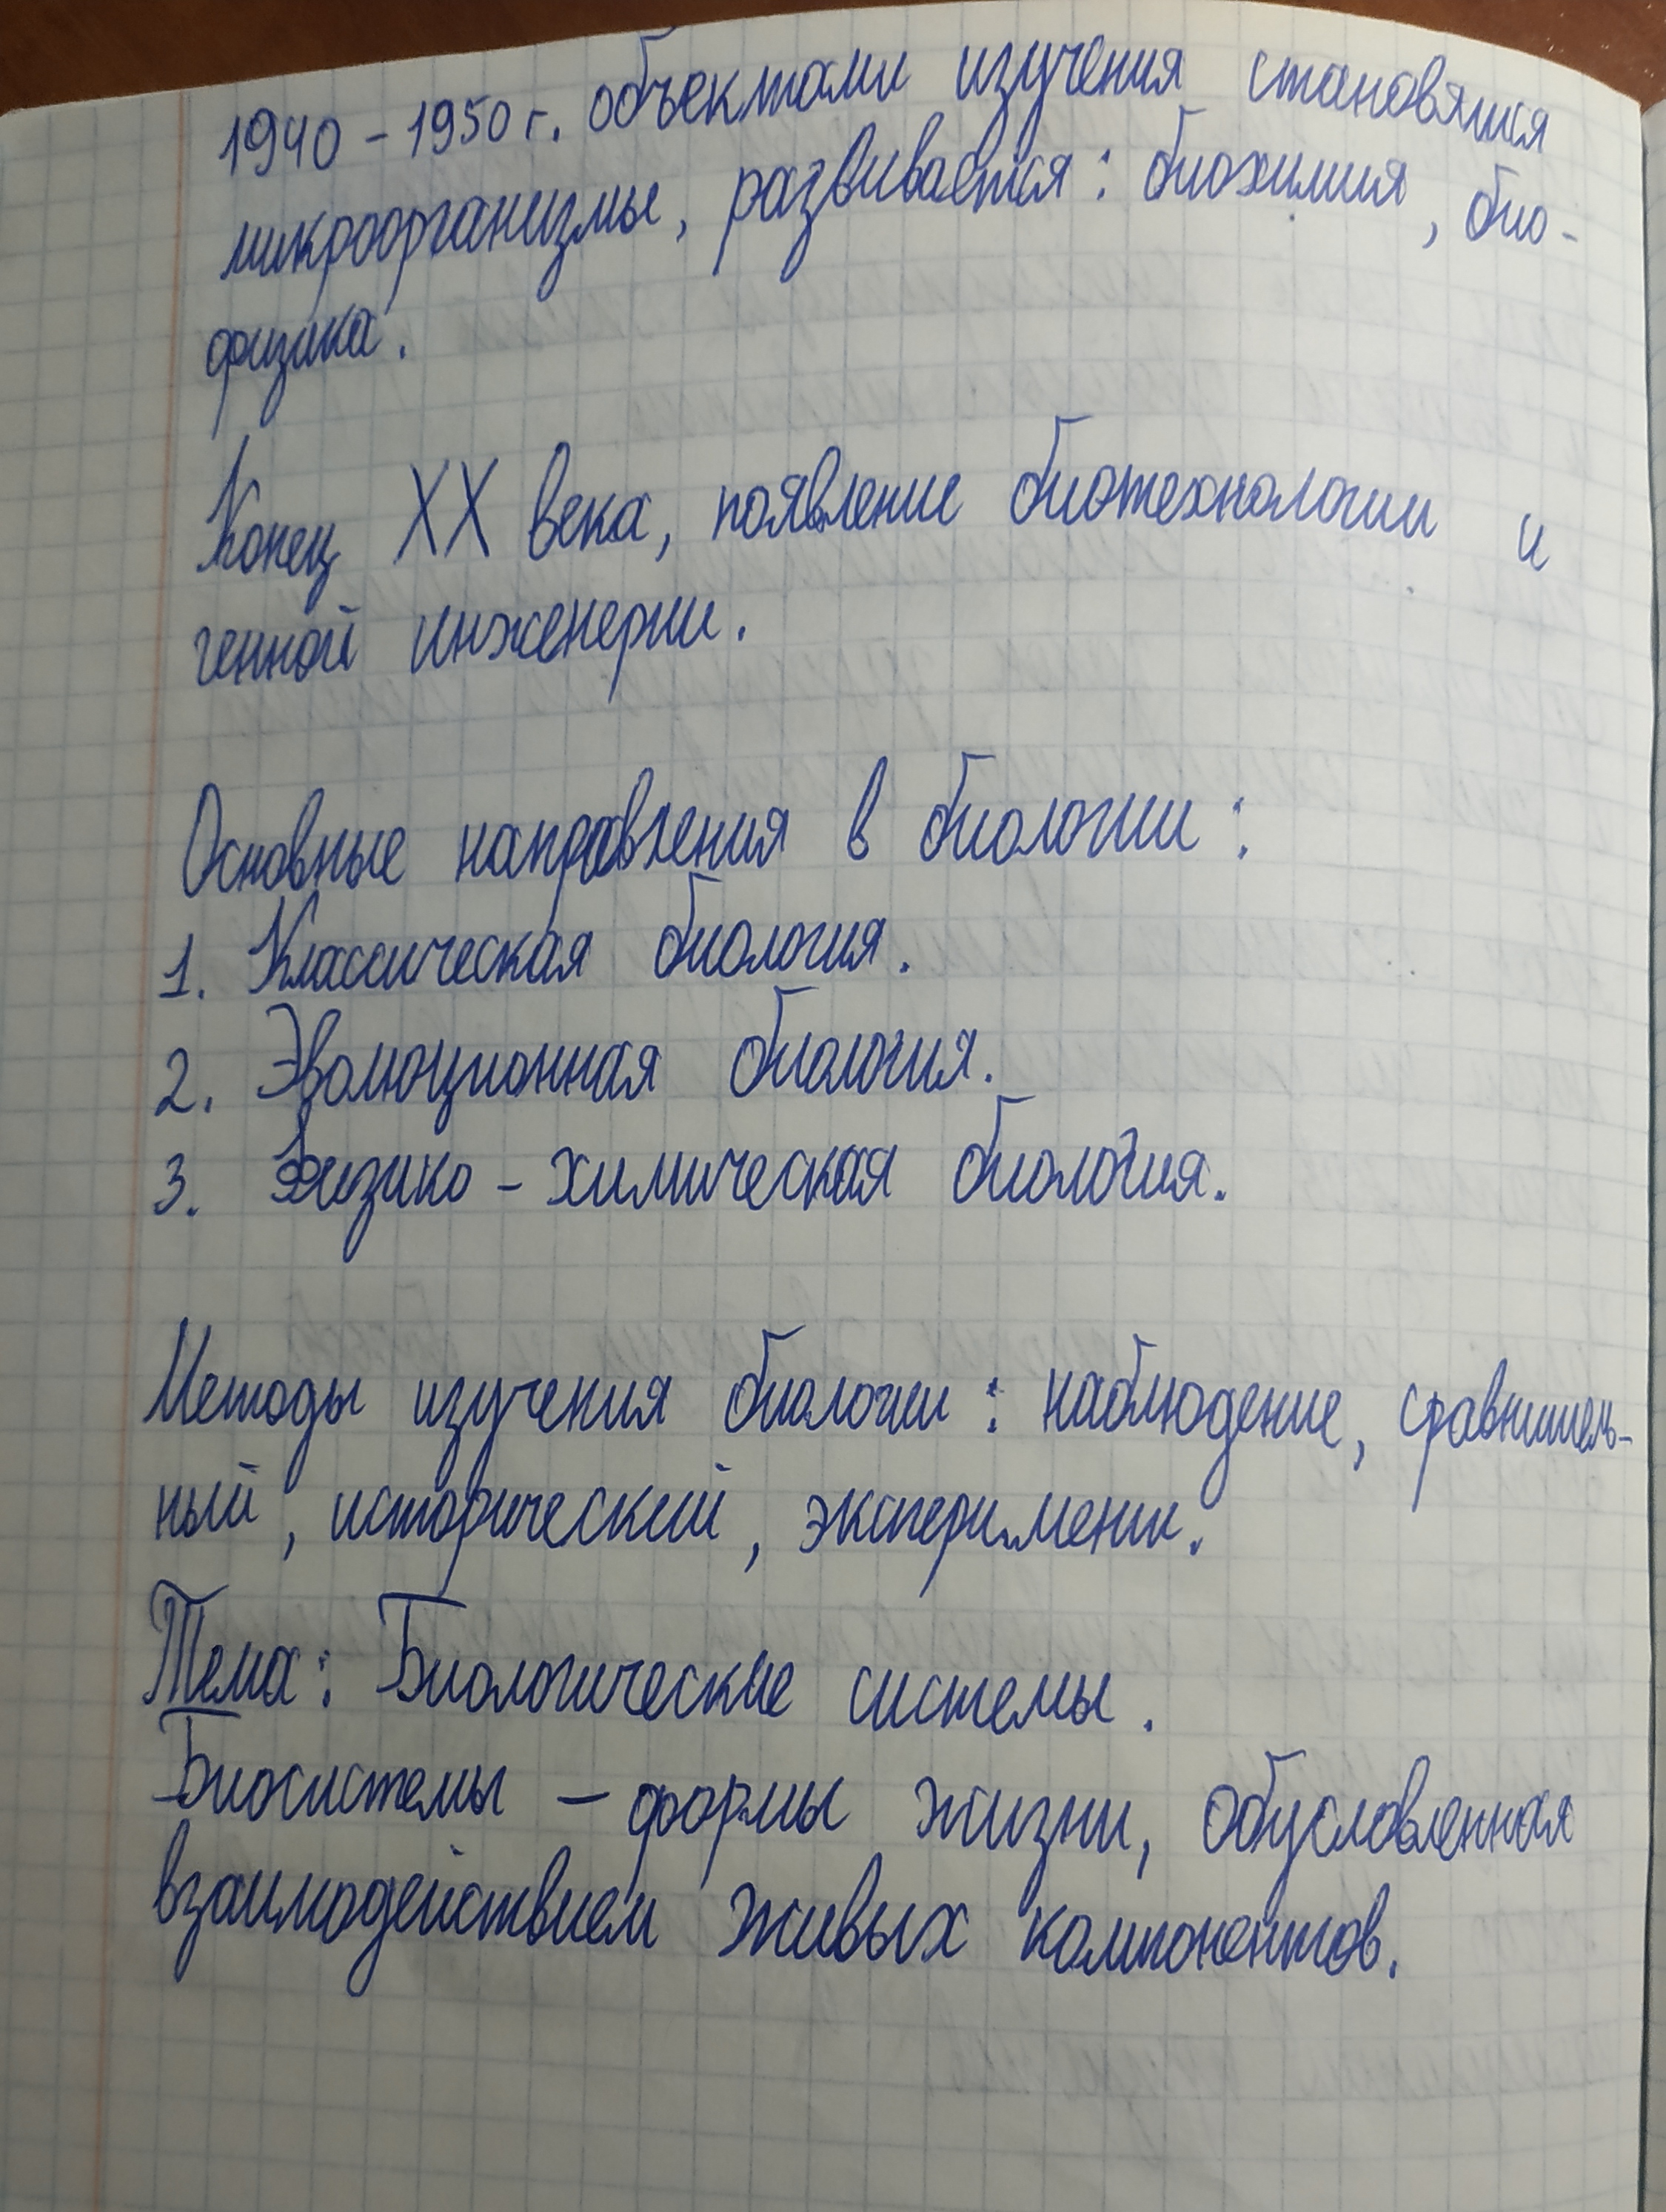 1940 - 1950 г. объектами изучения становятся
микроорганизмы, развивается: биохимия, био-
физика.
Конец XX века, появление биотехнологии и
генной инженерии.
Основные направления в биологии:
1. Классическая биология.
2. Эволюционная биология.
3. Физико - химическая биология.
Методы изучения биологии: наблюдение, сравнитель-
ный, исторический, эксперимент.
Тема: Биологические системы.
Биосистемы - формы жизни, обусловленная
взаимодействием живых компонентов.